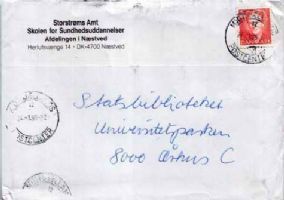 Storstrøms Amt
Skolen for Sundhedsuddannelser
Afdelingen i Næstved
Herlufsvænge 14 • DK-4700 Næstved
POSTCENTER
Statsbiblioteket
Universitetsparken
8000 Århus C
POSTCENTER